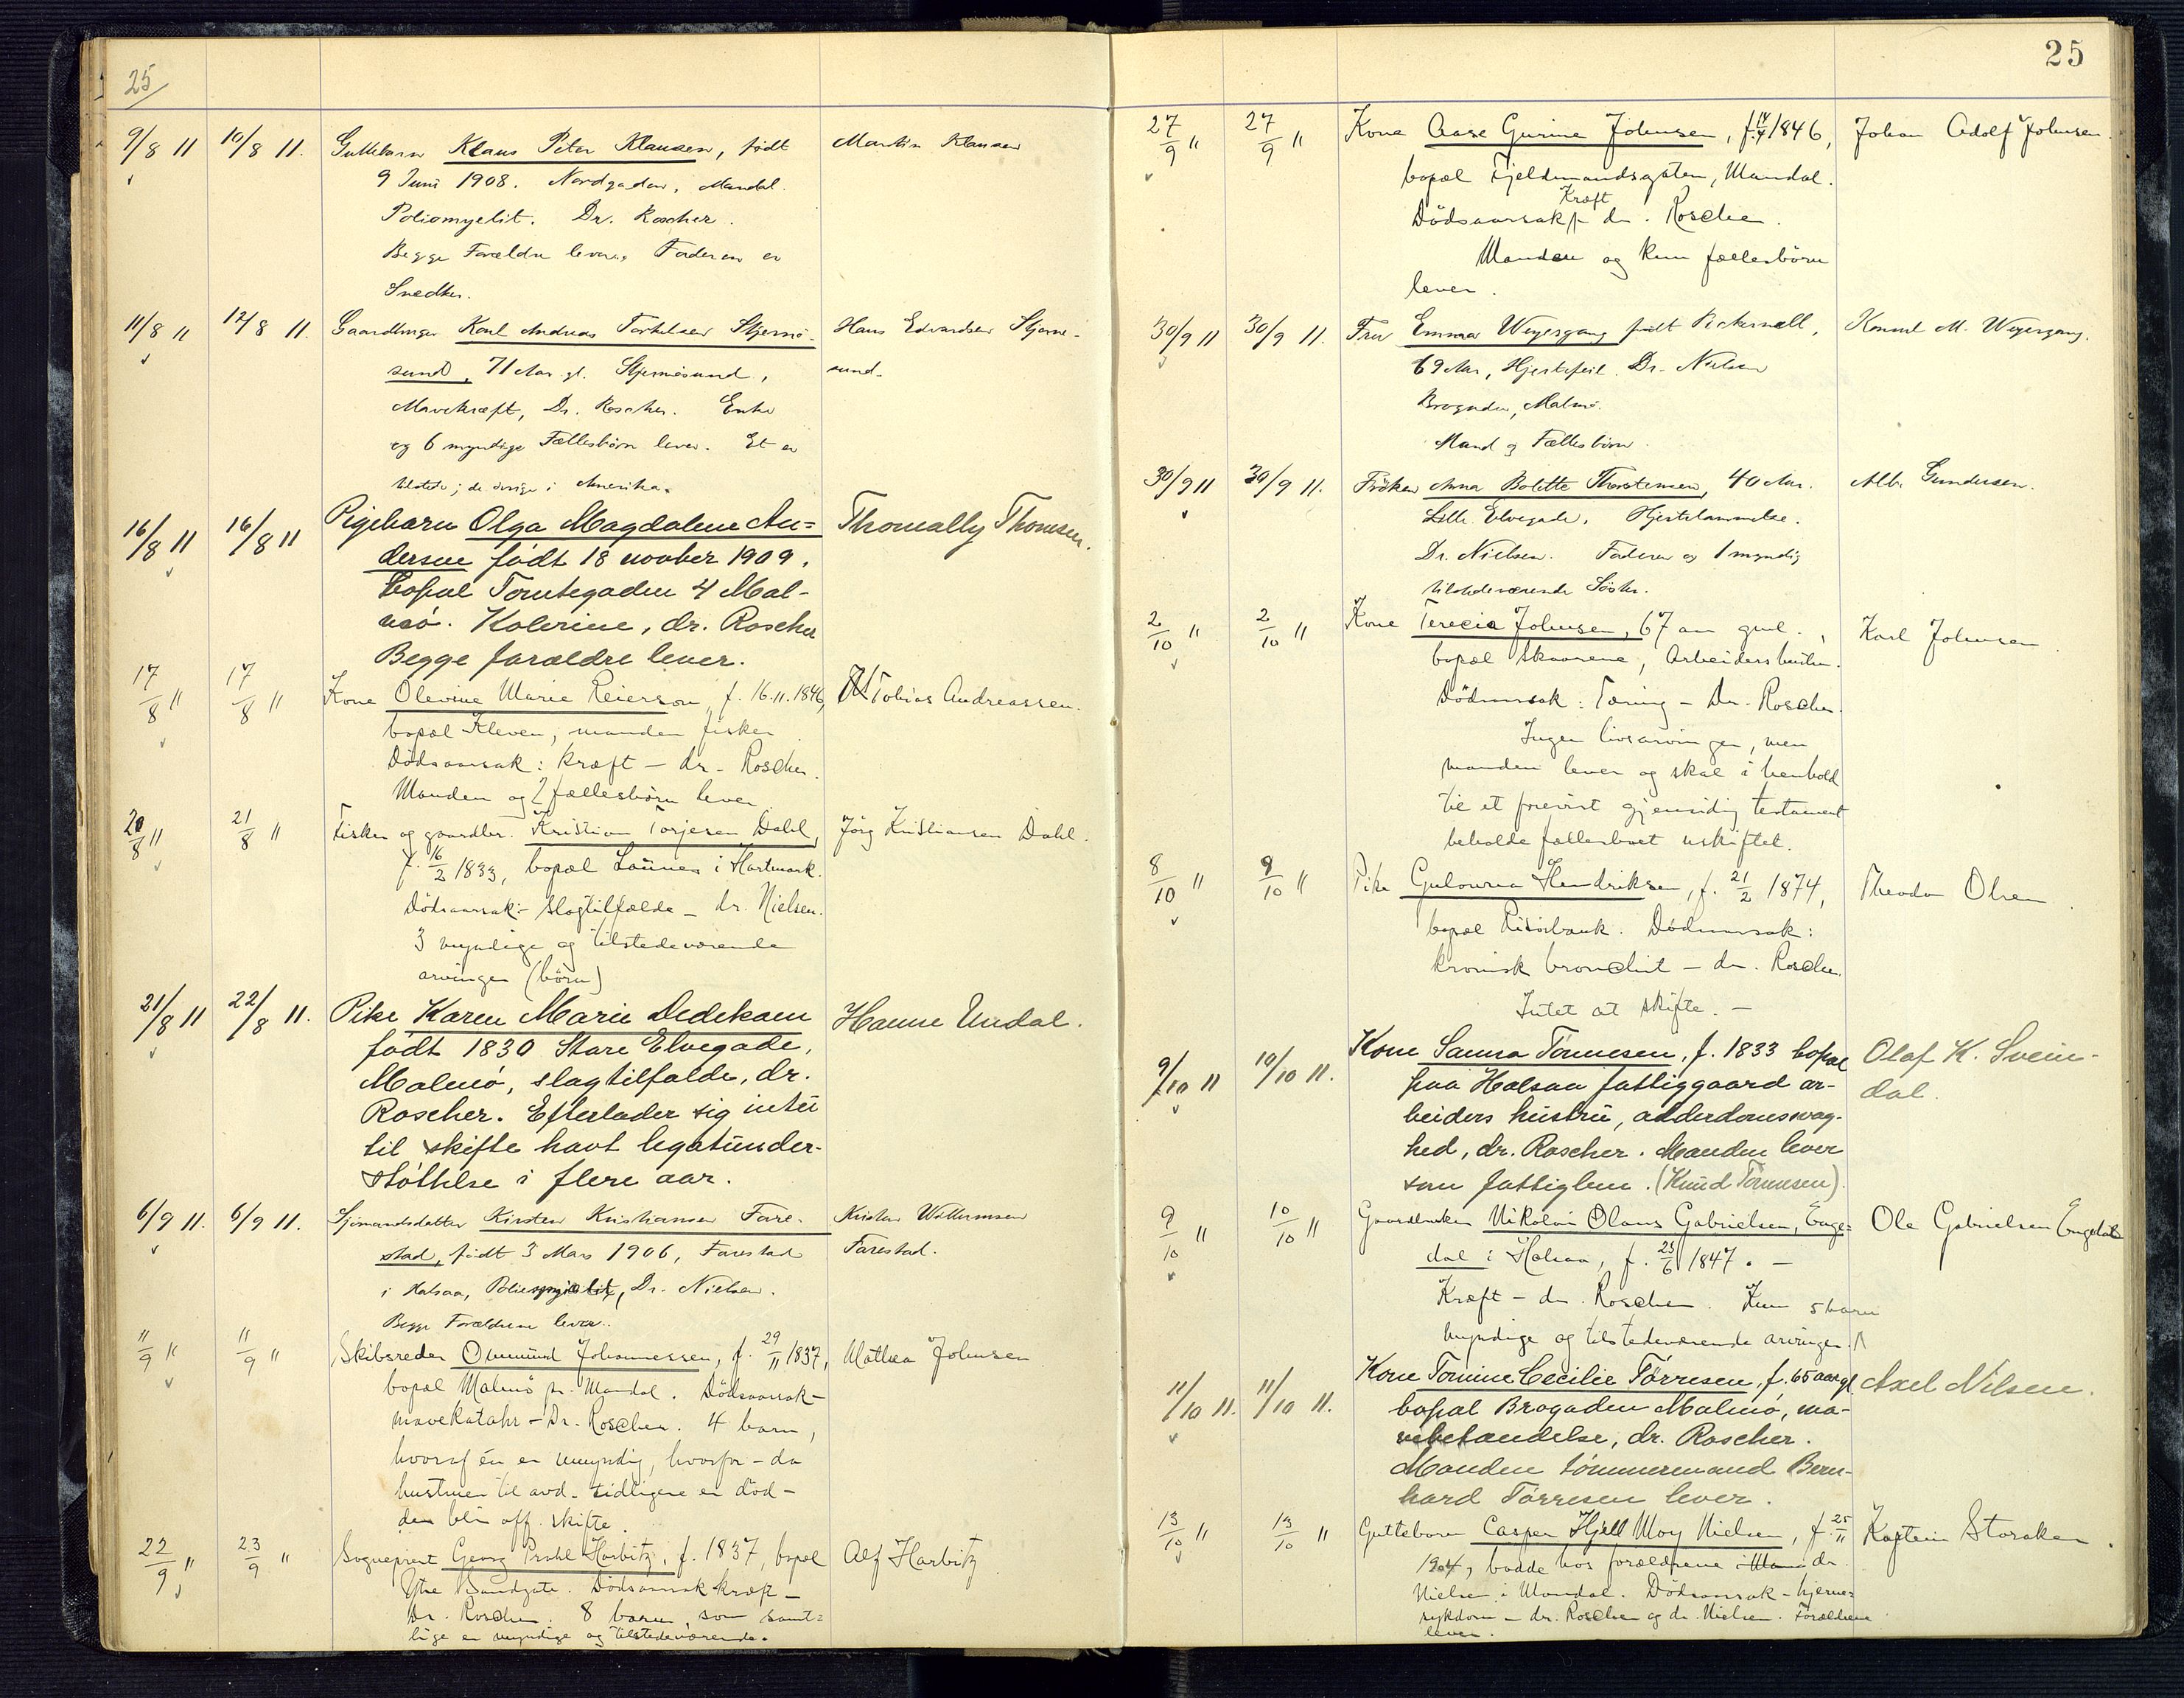 25
9/8 11 10/8 11. Guttebarn Klaus Peter Klausen, født Martin Klausen
9 Juni 1908. Nordgaden, Mandal.
Poliomyelit. Dr. Roscher.
Begge Forældre lever, Faderen er
Snedker.
11/8 11 12/8 11. Gaardbruger Karl Andreas Torkelsen Skjernø- Hans Edvardsen Skjernø-
sund, 71 Aar gl. Skjernøsund, sund.
Mavekræft, Dr. Roscher. Enke
og 6 myndige Fællesbørn lever. Et er
tilstede; de øvrige i Amerika.
16/8 11 16/8 11 Pigebarn Olga Magdalene An= Thomally Thomsen.
dersen født 18 novber 1909.
Bopæl Tomtegaden 4 Mal-
mø. Kolerine, dr. Roscher
Begge forældre lever.
17/8 " 17/8 " Kone Olevine Marie Reierson, f. 16.11.1846, Tobias Andreassen.
bopæl Kleven, manden fisker
Dødsaarsak: kræft - dr. Roscher.
Manden og 2 fællesbørn lever
20/8 " 21/8 " Fisker og gaardbr. Kristian Torjesen Dahl, Jørg Kristiansen Dahl.
f. 16/2 1833, bopæl i Hartmark.
Dødsaarsak:- slagtilfælde - dr. Nielsen.
3 myndige og tilstedeværende
arvinger (børn)
21/8 11 22/8 11. Pike Karen Marie Dedekam Hanne Undal.
født 1830 Store Elvegade,
Malmø, slagtilfælde, dr.
Roscher. Efterlader sig intet
til skifte havt legatunder-
støttelse i flere aar.
6/9 11. 6/9 11. Sjømandsdatter Kirsten Kristiansen Fare- Kristen Willumsen
stad, født 3 Mars 1906, Farestad Farestad.
i Halsaa, Poliomyelit, Dr. Nielsen.
Begge Forældrene lever.
11/9 " 11/9 " Skibsreder Ommund Johannessen, f. 29/11 1837, Mathea Johnsen
bopæl Malmø pr. Mandal. Dødsaarsak-
mavekatahr - Dr. Roscher. 4 barn,
hvoraf én er umyndig, hvorfor - da
hustruen til avd. tidligere er død -
der blir off. skifte.
22/9 " 23/9 " Sogneprest Georg Prahl Harbitz, f. 1837, bopæl Alf Harbitz
Ytre Sandgate. Dødsaarsak kræft -
Dr. Roscher. 8 barn, som samt=
lige er myndige og tilstedeværende.
25
27/9 " 27/9 " Kone Aase Gurine Johnsen, f. 14/4 1846, Johan Adolf Johnsen.
bopæl Fjeldmandsgaten, Mandal.
Kræft
Dødsaarsak dr. Roscher.
Manden og kun fællesbørn
lever.
30/9 11 30/9 11. Fru Emma Weyergang født Pickersnell, Konsul M. Weyergang.
69 Aar, Hjertefeil. Dr. Nielsen
Brogaden, Malmø.
Mand og Fællesbørn.
30/9 11 30/9 11. Frøken Anna Bolette Thorstensen, 40 Aar. Alb. Gundersen.
Lille Elvegade. Hjertelammelse.
Dr. Nielsen. Faderen og 1 myndig
tilstedeværende Søster.
2/10 " 2/10 " Kone Terecia Johnsen, 67 aar gml., Karl Johnsen
bopæl Skaarene, Arbeidershustru.
Dødsaarsak: Tæring - Dr. Roscher.
Ingen livsarvinger, men
manden lever og skal i henhold
til et forevist gjensidig testament
beholde fællesboet uskiftet.
8/10 " 9/10 " Pike Gulowna Hendriksen, f. 21/2 1874, Theodor Olsen
bopæl Risørbank. Dødsaarsak:
kronisk bronchit - dr. Roscher.
Intet at skifte. -
9/10 11 10/10 11. Kone Sanna Tønnesen, f. 1833 bopæl Olaf K. Svein-
paa Halsaa fattiggaard ar- dal
beiders hustru, alderdomssvag-
hed, dr. Roscher. Manden lever
som fattiglem. (Knud Tønnesen).
9/10 " 10/10 " Gaardbruker Nikolai Olaus Gabrielsen, Enge= Ole Gabrielsen Engedal
dal i Halsaa, f. 23/6 1847. -
Kræft - dr. Roscher. Kun 5 barn
myndige og tilstedeværende arvinger.
11/10 11. 11/10 11. Kone Tomine Cecilie Tørresen, f. 65 aar gl Axel Nilsen.
bopæl Brogaden Malmø, ma-
vebetændelse, dr. Roscher.
Manden tømmermand Bern-
hard Tørresen lever.
13/10 " 13/10 " Guttebarn Casper Kjell Moy Nielsen, f. 25/11 Kaptein Storaker.
1904, bodde hos forældrene dr.
Nielsen i Mandal. Dødsaarsak - hjerne=
sykdom - dr. Roscher og dr. Nielsen. Forældrene
lever.